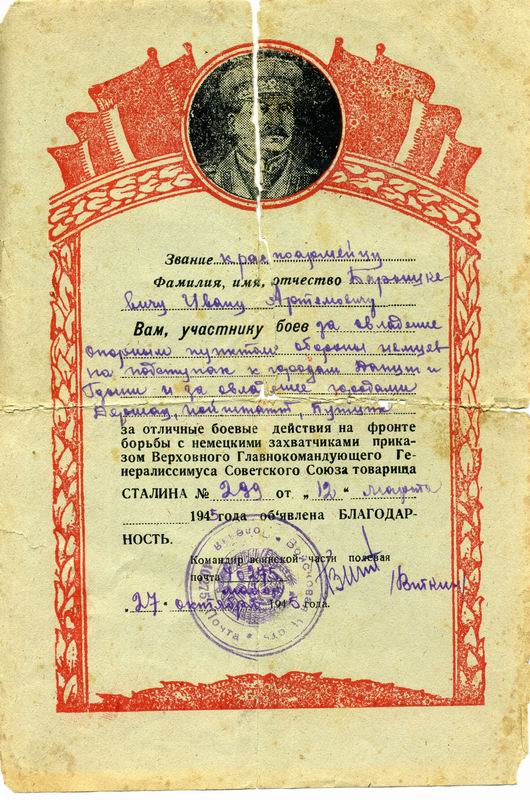 Звание красноармейцу
Фамилия, имя, отчество Барнцке
вичу Ивану Артемовичу
Вам, участнику боев за овладение
опорным пунктом обороны немцев
на подступах к городам Данциг и
Гдыня и за овладение городами
Нейштатт, Путциг
за отличные боевые действия на фронте
борьбы с немецкими захватчиками прика-
зом Верховного Главнокомандующего Ге-
нералиссимуса Советского Союза товарища
СТАЛИНА № 299 от „12" марта
1945 года об'явлена БЛАГОДАР-
НОСТЬ.
Командир воинской части полевая
почта 70275
майор /Виткин/
„27" октября 1945 года.